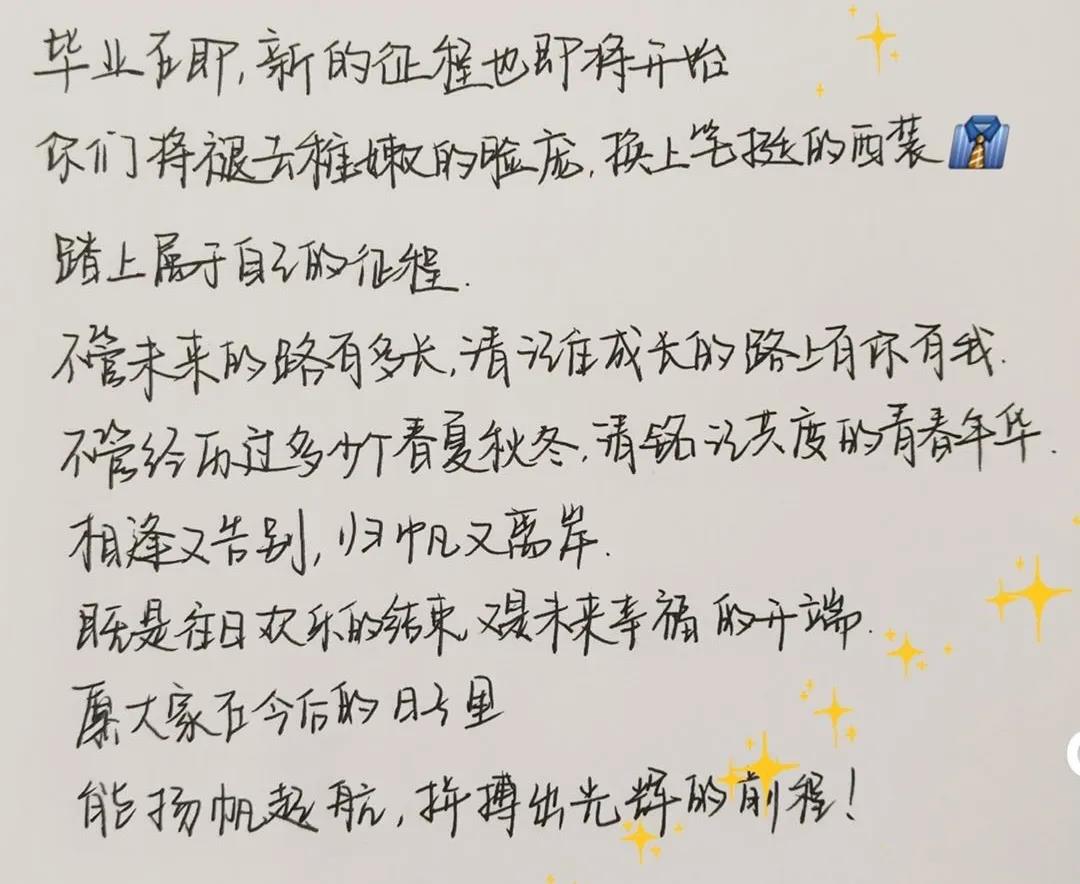 毕业在即,新的征程也即将开始
你们将褪去稚嫩的脸庞,换上笔挺的西装👔
踏上属于自己的征程.
不管未来的路有多长,请记谁成长的路上有你有我.
不管经历过多少个春夏秋冬,请铭记共度的青春年华.
相逢又告别,归帆又离岸.
既是往日欢乐的结束,又是未来幸福的开端.
愿大家在今后的日子里
能扬帆起航,拼搏出光辉的前程!